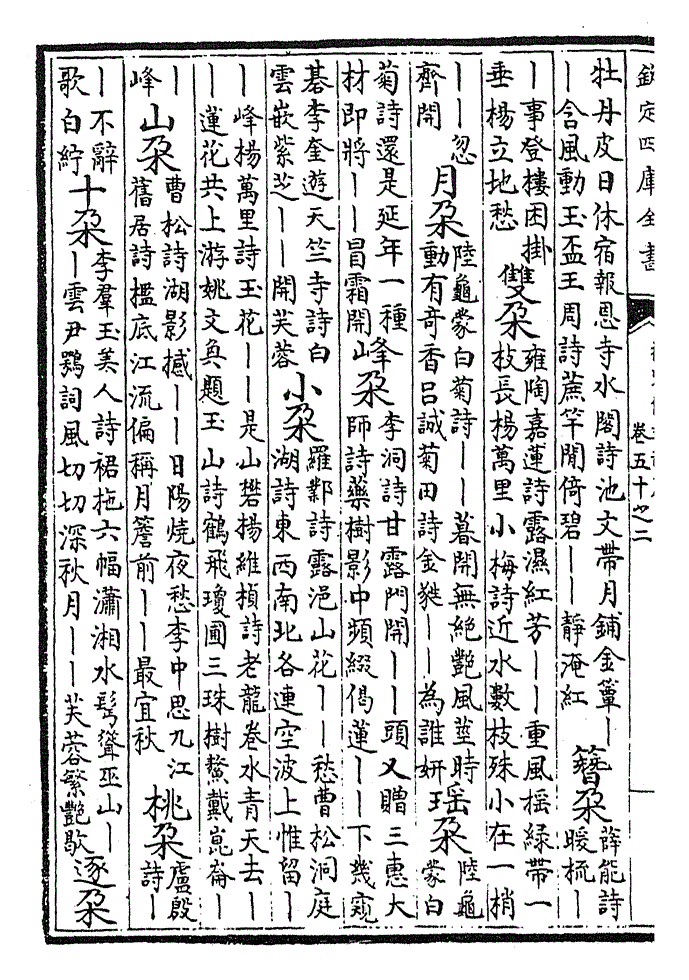 欽定四庫全書
卷五十之二
牡丹皮日休宿報恩寺水閣詩池文帶月鋪金簟〡
〡含風動玉盃王周詩蔗竿閒倚碧〡〡靜淹紅
簪朶
薛能詩
暖梳〡
〡事登樓困掛
垂楊立地愁
雙朶
雍陶嘉蓮詩露濕紅芳〡〡重風揺緑帶一
枝長楊萬里小梅詩近水數枝殊小在一梢
〡〡忽
齊開
月朶
陸龜蒙白菊詩〡〡暮開無絶艷風莖時
動有奇香吕誠菊田詩金〡〡為誰妍
瑶朶
陸龜
蒙白
菊詩還是延年一種
材即將〡〡冒霜開
峰朶
李洞詩甘露門開〡〡頭又贈三惠大
師詩藥樹影中頻綴偈蓮〡〡下幾窺
碁李奎遊天竺寺詩白
雲嵌紫芝〡〡開芙蓉
小朶
羅鄴詩露浥山花〡〡愁曹松洞庭
湖詩東西南北各連空波上惟留〡
〡峰楊萬里詩玉花〡〡是山礬楊維楨詩老龍卷水青天去〡
〡蓮花共上游姚文奐題玉山詩鶴飛瓊圃三珠樹鰲戴崑崙〡
〡
峰
山朶
曹松詩湖影撼〡〡日陽燒夜愁李中思九江
舊居詩檻底江流偏稱月簷前〡〡最宜秋
桃朶
盧殷
詩〡
〡不辭
歌白紵
十朶
李羣玉美人詩裙拖六幅瀟湘水鬢聳巫山〡
〡雲尹鶚詞風切切深秋月〡〡芙蓉繁艷歇
逐朶